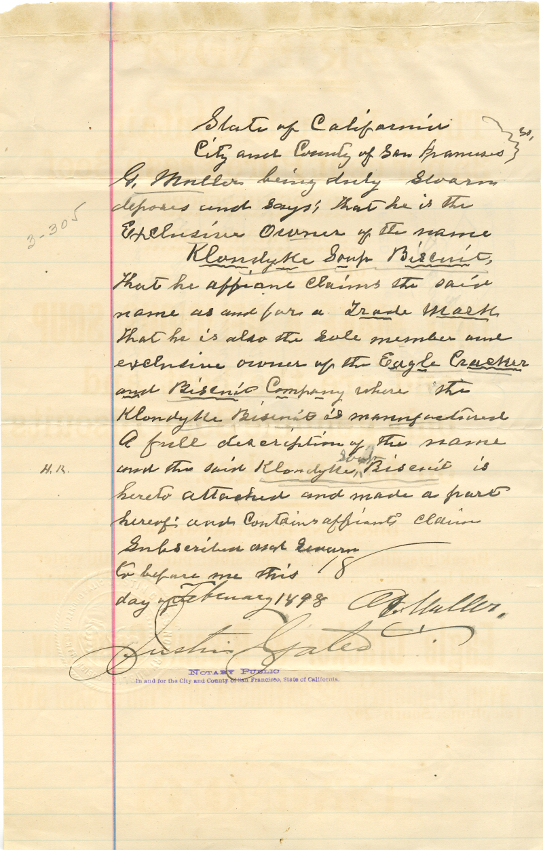 State of California
City and County of San Francisco } ss,
G. Muller being duly Sworn
deposes and says; that he is the
Exclusive Owner of the name
Klondyke Soup Biscuit,
that he affiant claims the said
name as and for a Trade Mark
that he is also the sole member and
exclusive owner of the Eagle Cracker
and Biscuit Company where the
Klondyke Biscuit is manufactured
A full description of the name
and the said Klondyke Soup Biscuit is
hereto attached and made a part
hereof and Contains affiants claim
Subscribed and Sworn
to before me this 18
day of February 1898 G. Muller.
Justin Gates
NOTARY PUBLIC
In and for the City and County of San Francisco, State of California.
3-305
H.K.